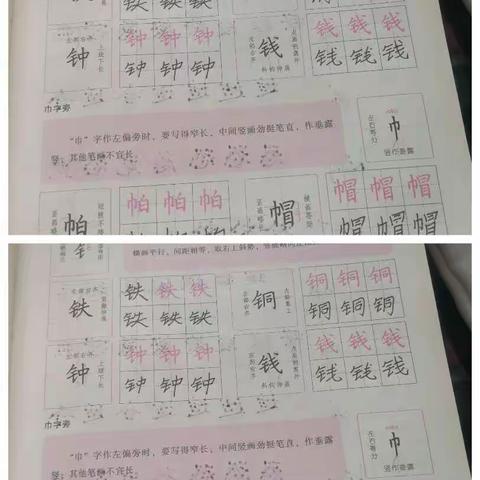 铁 铁 铁
钟 钟 钟 钟
钟 钟 钟
左部右齐
上放下长
钱 钱 钱 钱
钱 钱 钱
斜钩伸展
巾字旁
“巾”字作左偏旁时，要写得窄长，中间竖画劲挺笔直，作垂露
竖；其他笔画不宜长。
左右等分
巾
竖作垂露
帕 帕 帕 帕
帽 帽 帽 帽
帽 帽 帽
横画平行，间距相等，取右上斜势
铁 铁 铁 铁
铁 铁 铁
铜 铜 铜 铜
铜 铜 铜
钟 钟 钟 钟
钟 钟 钟
上放下长
钱 钱 钱 钱
钱 钱 钱
斜钩伸展
巾字旁
“巾”字作左偏旁时，要写得窄长，中间竖画劲挺笔直，作垂露
竖；其他笔画不宜长。
左右等分
巾
竖作垂露